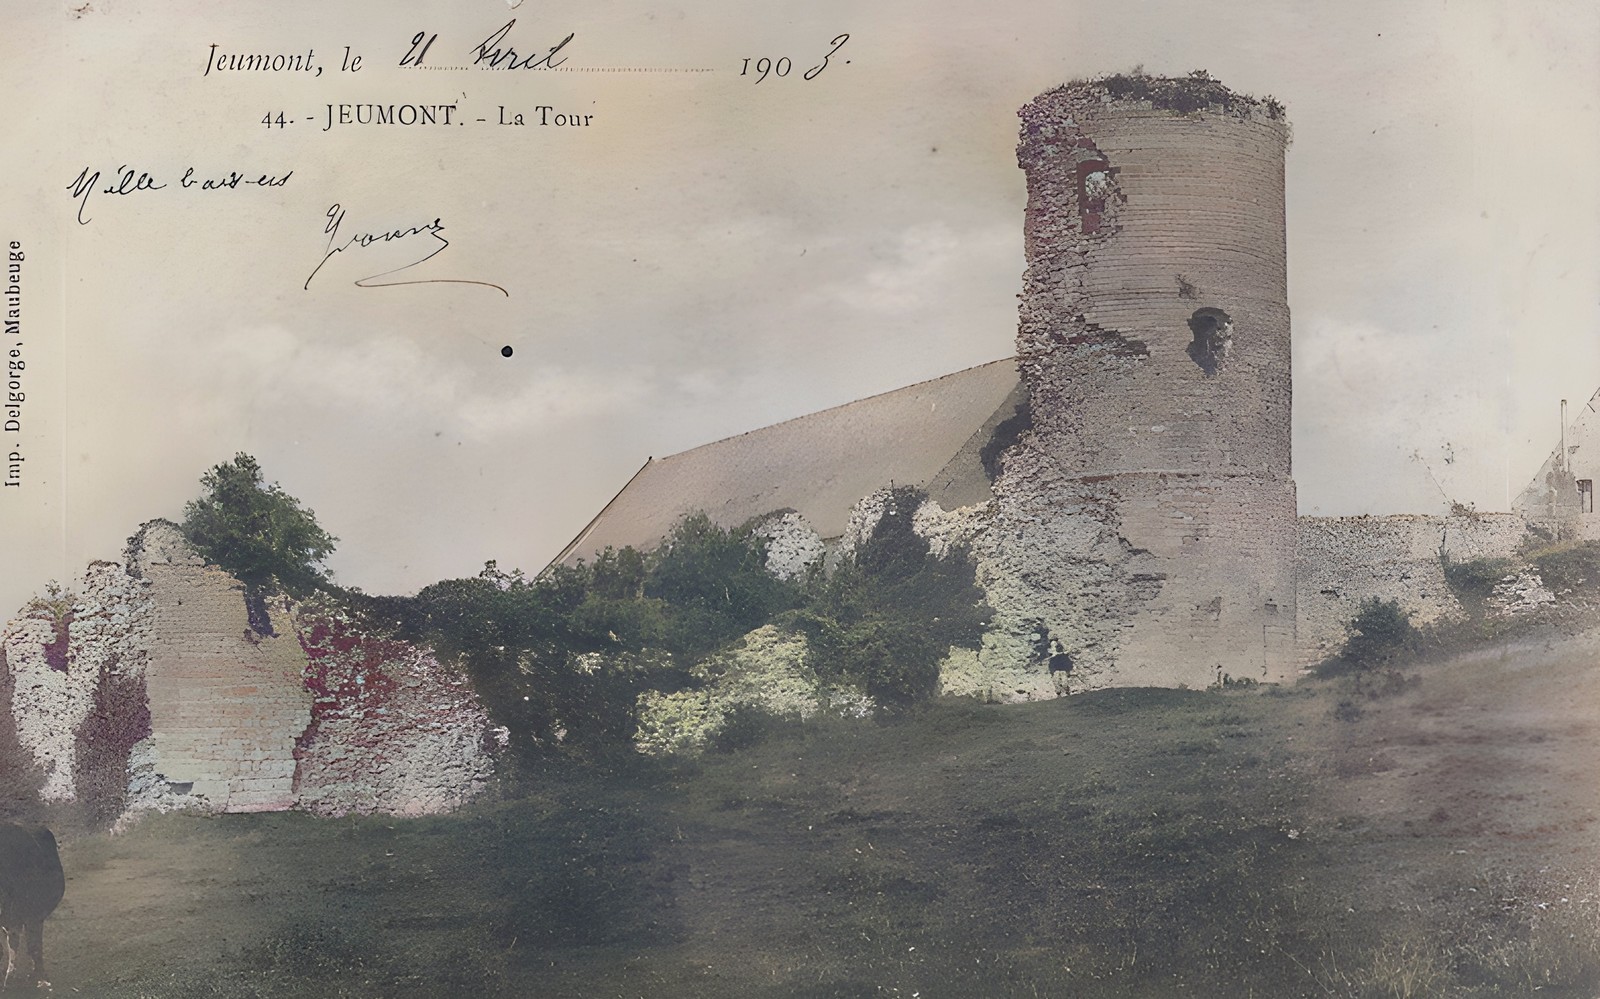 Jeumont, le 21 Avril 1903.
44. - JEUMONT. - La Tour
Mille baisers
Yvonne
Imp. Delgorge, Maubeuge